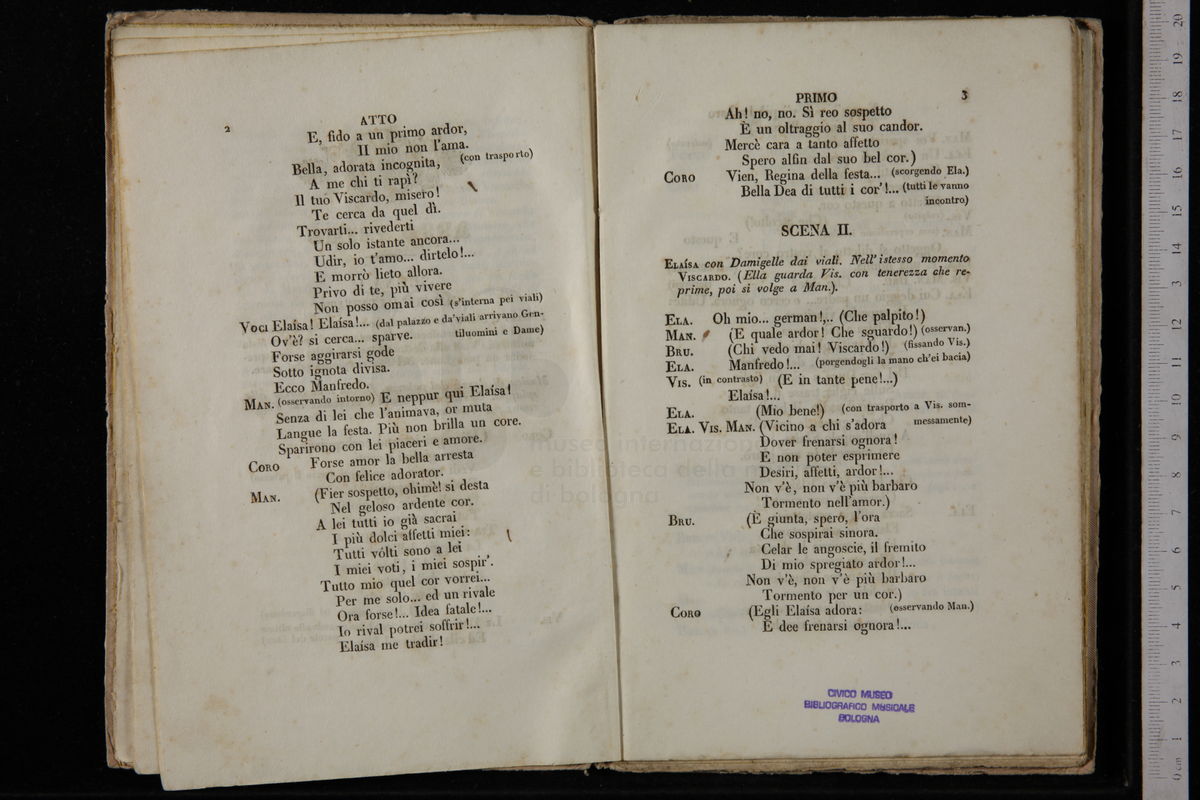 2
ATTO
E, fido a un primo ardor,
Il mio non l'ama.
Bella, adorata incognita, (con trasporto)
A me chi ti rapì?
Il tuo Viscardo, misero!
Te cerca da quel dì.
Trovarti... rivederti
Un solo istante ancora...
Udir, io t'amo... dirtelo!...
E morrò lieto allora.
Privo di te, più vivere
Non posso omai così (s'interna pei viali)
Voci Elaísa! Elaísa!... (dal palazzo e da'viali arrivano Gen-
Ov'è? si cerca... sparve. tiluomini e Dame)
Forse aggirarsi gode
Sotto ignota divisa.
Ecco Manfredo.
Man. (osservando intorno) E neppur qui Elaísa!
Senza di lei che l'animava, or muta
Langue la festa. Più non brilla un core.
Sparirono con lei piaceri e amore.
Coro Forse amor la bella arresta
Con felice adorator.
Man. (Fier sospetto, ohimè! si desta
Nel geloso ardente cor.
A lei tutti io già sacrai
I più dolci affetti miei:
Tutti vólti sono a lei
I miei voti, i miei sospir'.
Tutto mio quel cor vorrei...
Per me solo... ed un rivale
Ora forse!... Idea fatale!...
Io rival potrei soffrir!...
Elaísa me tradir!
PRIMO 3
Ah! no, no. Sì reo sospetto
È un oltraggio al suo candor.
Mercè cara a tanto affetto
Spero alfin dal suo bel cor.)
Coro Vien, Regina della festa... (scorgendo Ela.)
Bella Dea di tutti i cor'!... (tutti le vanno
incontro)
SCENA II.
Elaísa con Damigelle dai viali. Nell'istesso momento
Viscardo. (Ella guarda Vis. con tenerezza che re-
prime, poi si volge a Man.).
Ela. Oh mio... german!,.. (Che palpito!)
Man. (E quale ardor! Che sguardo!) (osservan.)
Bru. (Chi vedo mai! Viscardo!) (fissando Vis.)
Ela. Manfredo!... (porgendogli la mano ch'ei bacia)
Vis. (in contrasto) (E in tante pene!...)
Elaísa!...
Ela. (Mio bene!) (con trasporto a Vis. som-
Ela. Vis. Man. (Vicino a chi s'adora messamente)
Dover frenarsi ognora!
E non poter esprimere
Desiri, affetti, ardor!...
Non v'è, non v'è più barbaro
Tormento nell'amor.)
Bru. (È giunta, spero, l'ora
Che sospirai sinora.
Celar le angoscie, il fremito
Di mio spregiato ardor!...
Non v'è, non v'è più barbaro
Tormento per un cor.)
Coro (Egli Elaísa adora: (osservando Man.)
E dee frenarsi ognora!...
CIVICO MUSEO
BIBLIOGRAFICO MUSICALE
BOLOGNA
museo internazionale
e biblioteca della m
di bologna
0 cm 1 2 3 4 5 6 7 8 9 10 11 12 13 14 15 16 17 18 19 20